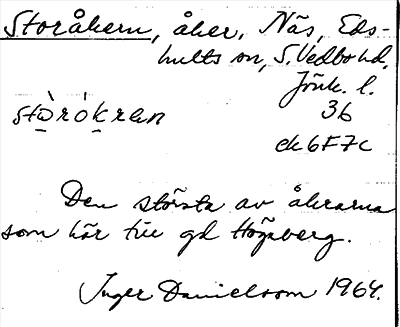 Storåkern, åker, Näs, Eds-
hults sn, S. Vedbo hd,
Jönk. l.
stòrókran
36
ek 6F7c
Den största av åkrarna
som hör till gd Högaberg.
Inger Danielsson 1964.